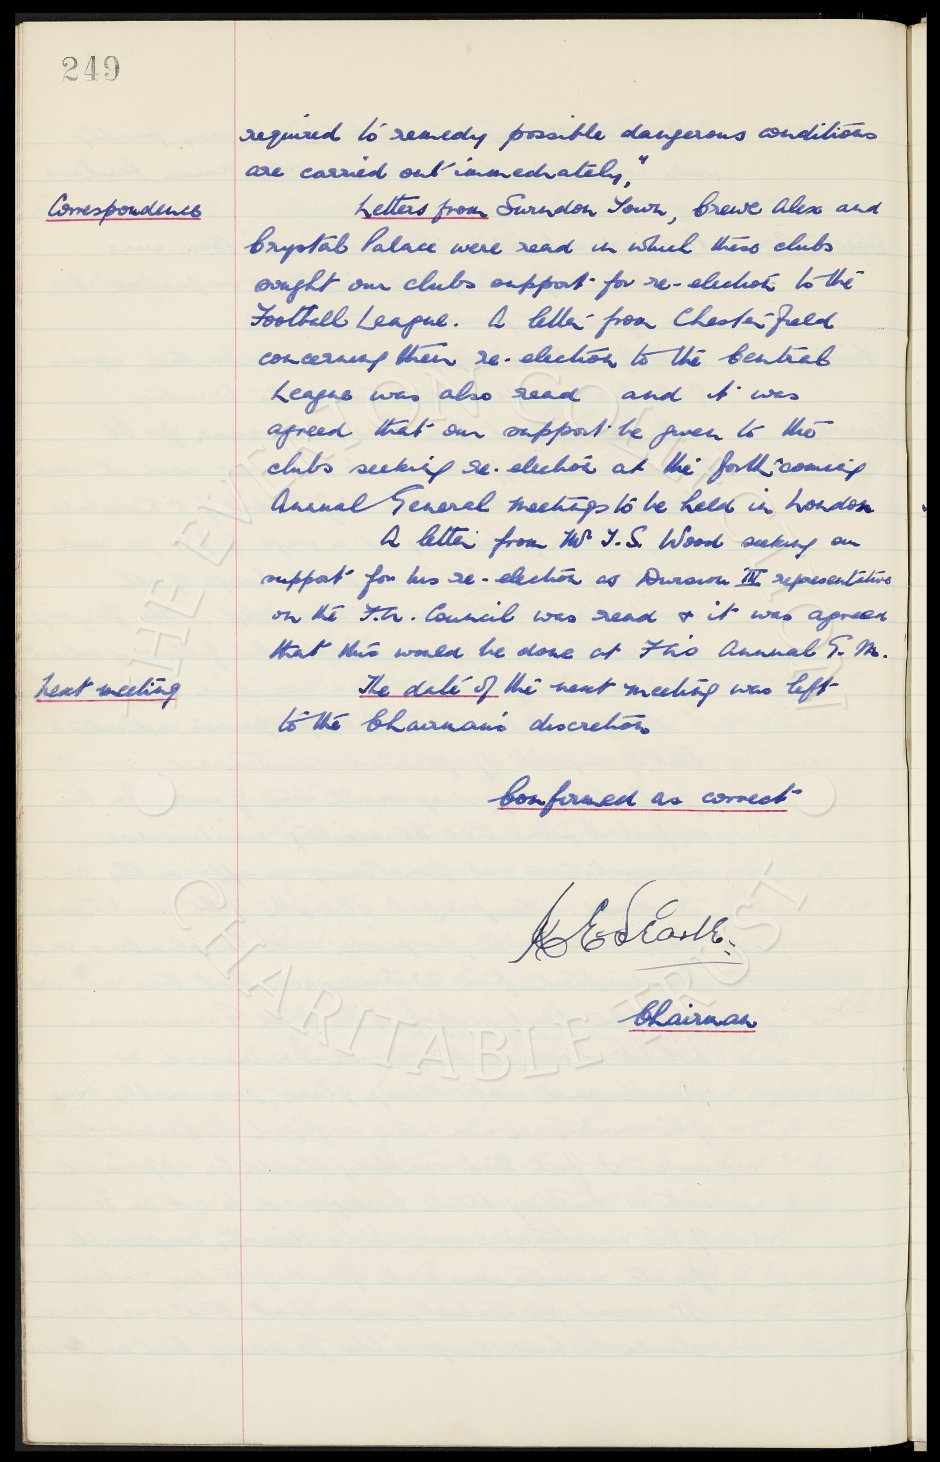 249
required to remedy possible dangerous conditions
are carried out immediately,"
Correspondence
Letters from Swindon Town, Crewe Alex and
Crystal Palace were read in which these clubs
sought our clubs support for re-election to the
Football League. A letter from Chesterfield
concerning their re-election to the Central
League was also read and it was
agreed that our support be given to the
clubs seeking re-election at the forthcoming
Annual General Meetings to be held in London
A letter from Mr T.S. Wood seeking our
support for his re-election as Division III representative
on the F.A. Council was read & it was agreed
that this would be done at this Annual G.M.
Next meeting
The date of the next meeting was left
to the Chairman's discretion
Confirmed as correct
Searle.
Chairman
THE EVERTON COLLECTION
CHARITABLE TRUST